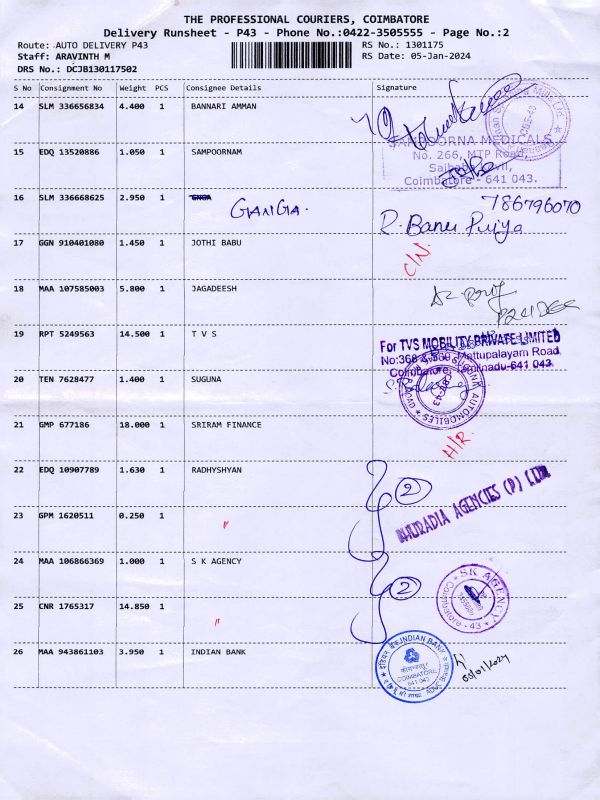 THE PROFESSIONAL COURIERS, COIMBATORE
Delivery Runsheet - P43 - Phone No.:0422-3505555 - Page No.:2
Route: AUTO DELIVERY P43 RS No.: 1301175
Staff: ARAVINTH M RS Date: 05-Jan-2024
DRS No.: DCJB130117502
S No Consignment No Weight PCS Consignee Details Signature
14 SLM 336656834 4.400 1 BANNARI AMMAN
15 EDQ 13520886 1.050 1 SAMPOORNAM
SAMPOORNA MEDICALS
No. 266, MTP Road,
Coimbatore - 641 043.
16 SLM 336668625 2.950 1 GNGA
GANGA.
786796070
R. Banu Priya
17 GGN 910401080 1.450 1 JOTHI BABU
C/N.
18 MAA 107585003 5.800 1 JAGADEESH
19 RPT 5249563 14.500 1 T V S
For TVS MOBILITY PRIVATE LIMITED
Mattupalayam Road,
Coimbatore, Tamilnadu-641 043.
20 TEN 7628477 1.400 1 SUGUNA
SUGUNA AUTOMOBILES
21 GMP 677186 18.000 1 SRIRAM FINANCE
H/R.
22 EDQ 10907789 1.630 1 RADHYSHYAN
2
BHURADIA AGENCIES (P) LTD
23 GPM 1620511 0.250 1 "
24 MAA 106866369 1.000 1 S K AGENCY
2
SK AGENCY
43
25 CNR 1765317 14.850 1 "
26 MAA 943861103 3.950 1 INDIAN BANK
INDIAN BANK
COIMBATORE
641 043
05/01/2024